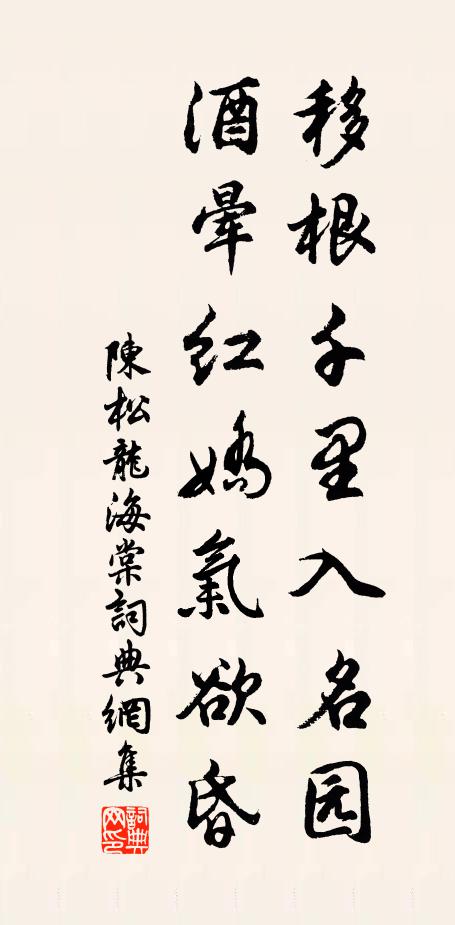 移根千里入名园
酒暈红嬌氣欲昏
陳松龍海棠詞典網集
詞典网印